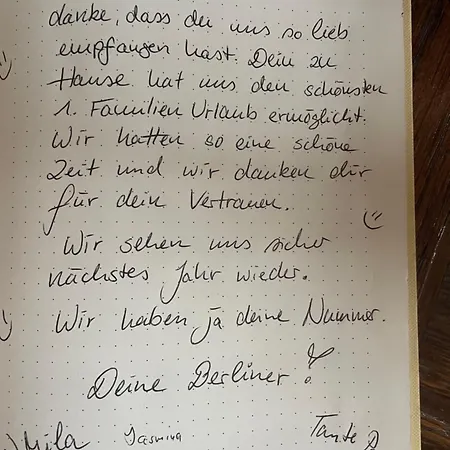 danke, dass du uns so lieb
empfangen hast. Dein zu
Hause hat uns den schönsten
1. Familien Urlaub ermöglicht.
Wir hatten so eine schöne
Zeit und wir danken dir
für dein Vertrauen.
Wir sehen uns sicher
nächstes Jahr wieder.
Wir haben ja deine Nummer.
Deine Berliner!
Mila Jasmina Tante